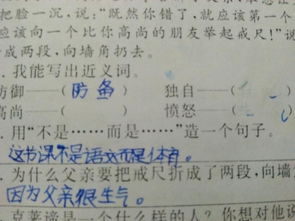 把脸一沉，说：“既然你错了，就应该第一个
应该向一个比你高尚的朋友举起戒尺！”说
成两段，向墙角扔去。
.我能写出近义词。
防御——（防鱼） 独自——（
高尚——（ ） 愤怒——（
.用“不是……而是……”造一个句子。
这节课不是语文而是体育。
.为什么父亲要把戒尺折成了两段，向墙
因为父亲很生气。
.克莱谛是一个什么样的人？你想对他说